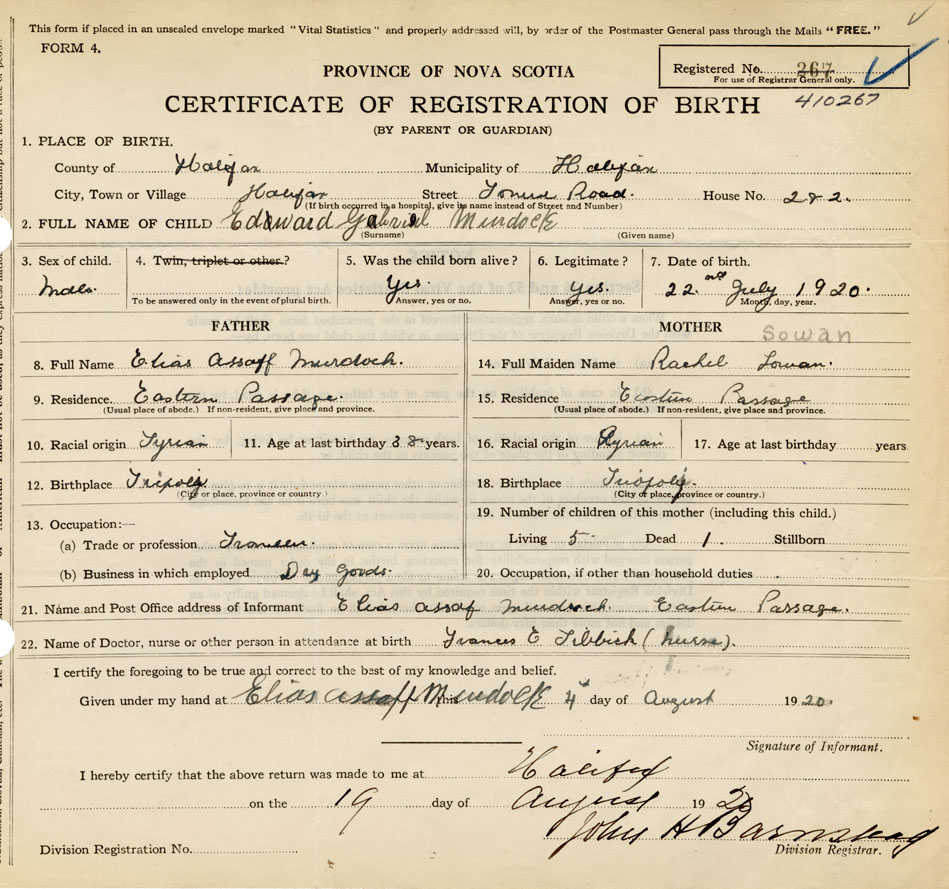 This form if placed in an unsealed envelope marked "Vital Statistics" and properly addressed will, by order of the Postmaster General pass through the Mails "FREE."
FORM 4.
Registered No. 267
For use of Registrar General only.
410267
PROVINCE OF NOVA SCOTIA
CERTIFICATE OF REGISTRATION OF BIRTH
(BY PARENT OR GUARDIAN)
1. PLACE OF BIRTH.
County of Halifax Municipality of Halifax
City, Town or Village Halifax Street Road. House No. 282.
(If birth occurred in a hospital, give its name instead of Street and Number)
2. FULL NAME OF CHILD Edward Gabriel Murdock
(Surname) (Given name)
3. Sex of child. 4. Twin, triplet or other? 5. Was the child born alive? 6. Legitimate? 7. Date of birth.
Male. Yes. Yes. 22nd July 1920.
To be answered only in the event of plural birth. Answer, yes or no. Answer, yes or no. Month, day, year.
FATHER MOTHER
Sowan
8. Full Name Elias Assaff Murdock. 14. Full Maiden Name Rachel Sowan.
9. Residence. Eastern Passage. 15. Residence Eastern Passage
(Usual place of abode.) If non-resident, give place and province. (Usual place of abode.) If non-resident, give place and province.
10. Racial origin Syrian 11. Age at last birthday 38 years. 16. Racial origin Syrian 17. Age at last birthday years
12. Birthplace Tripoly 18. Birthplace Tripoly.
(City or place, province or country.) (City or place, province or country.)
13. Occupation:— 19. Number of children of this mother (including this child.)
(a) Trade or profession Living 5 Dead 1. Stillborn
(b) Business in which employed Dry Goods. 20. Occupation, if other than household duties
21. Name and Post Office address of Informant Elias Assaf Murdock. Eastern Passage.
22. Name of Doctor, nurse or other person in attendance at birth Frances E Tibbish (nurse).
I certify the foregoing to be true and correct to the best of my knowledge and belief.
Given under my hand at Elias Assaff Murdock this 4 day of August 1920.
Signature of Informant.
I hereby certify that the above return was made to me at Halifax
on the 19 day of August 1920
John H Barnstead
Division Registration No. Division Registrar.